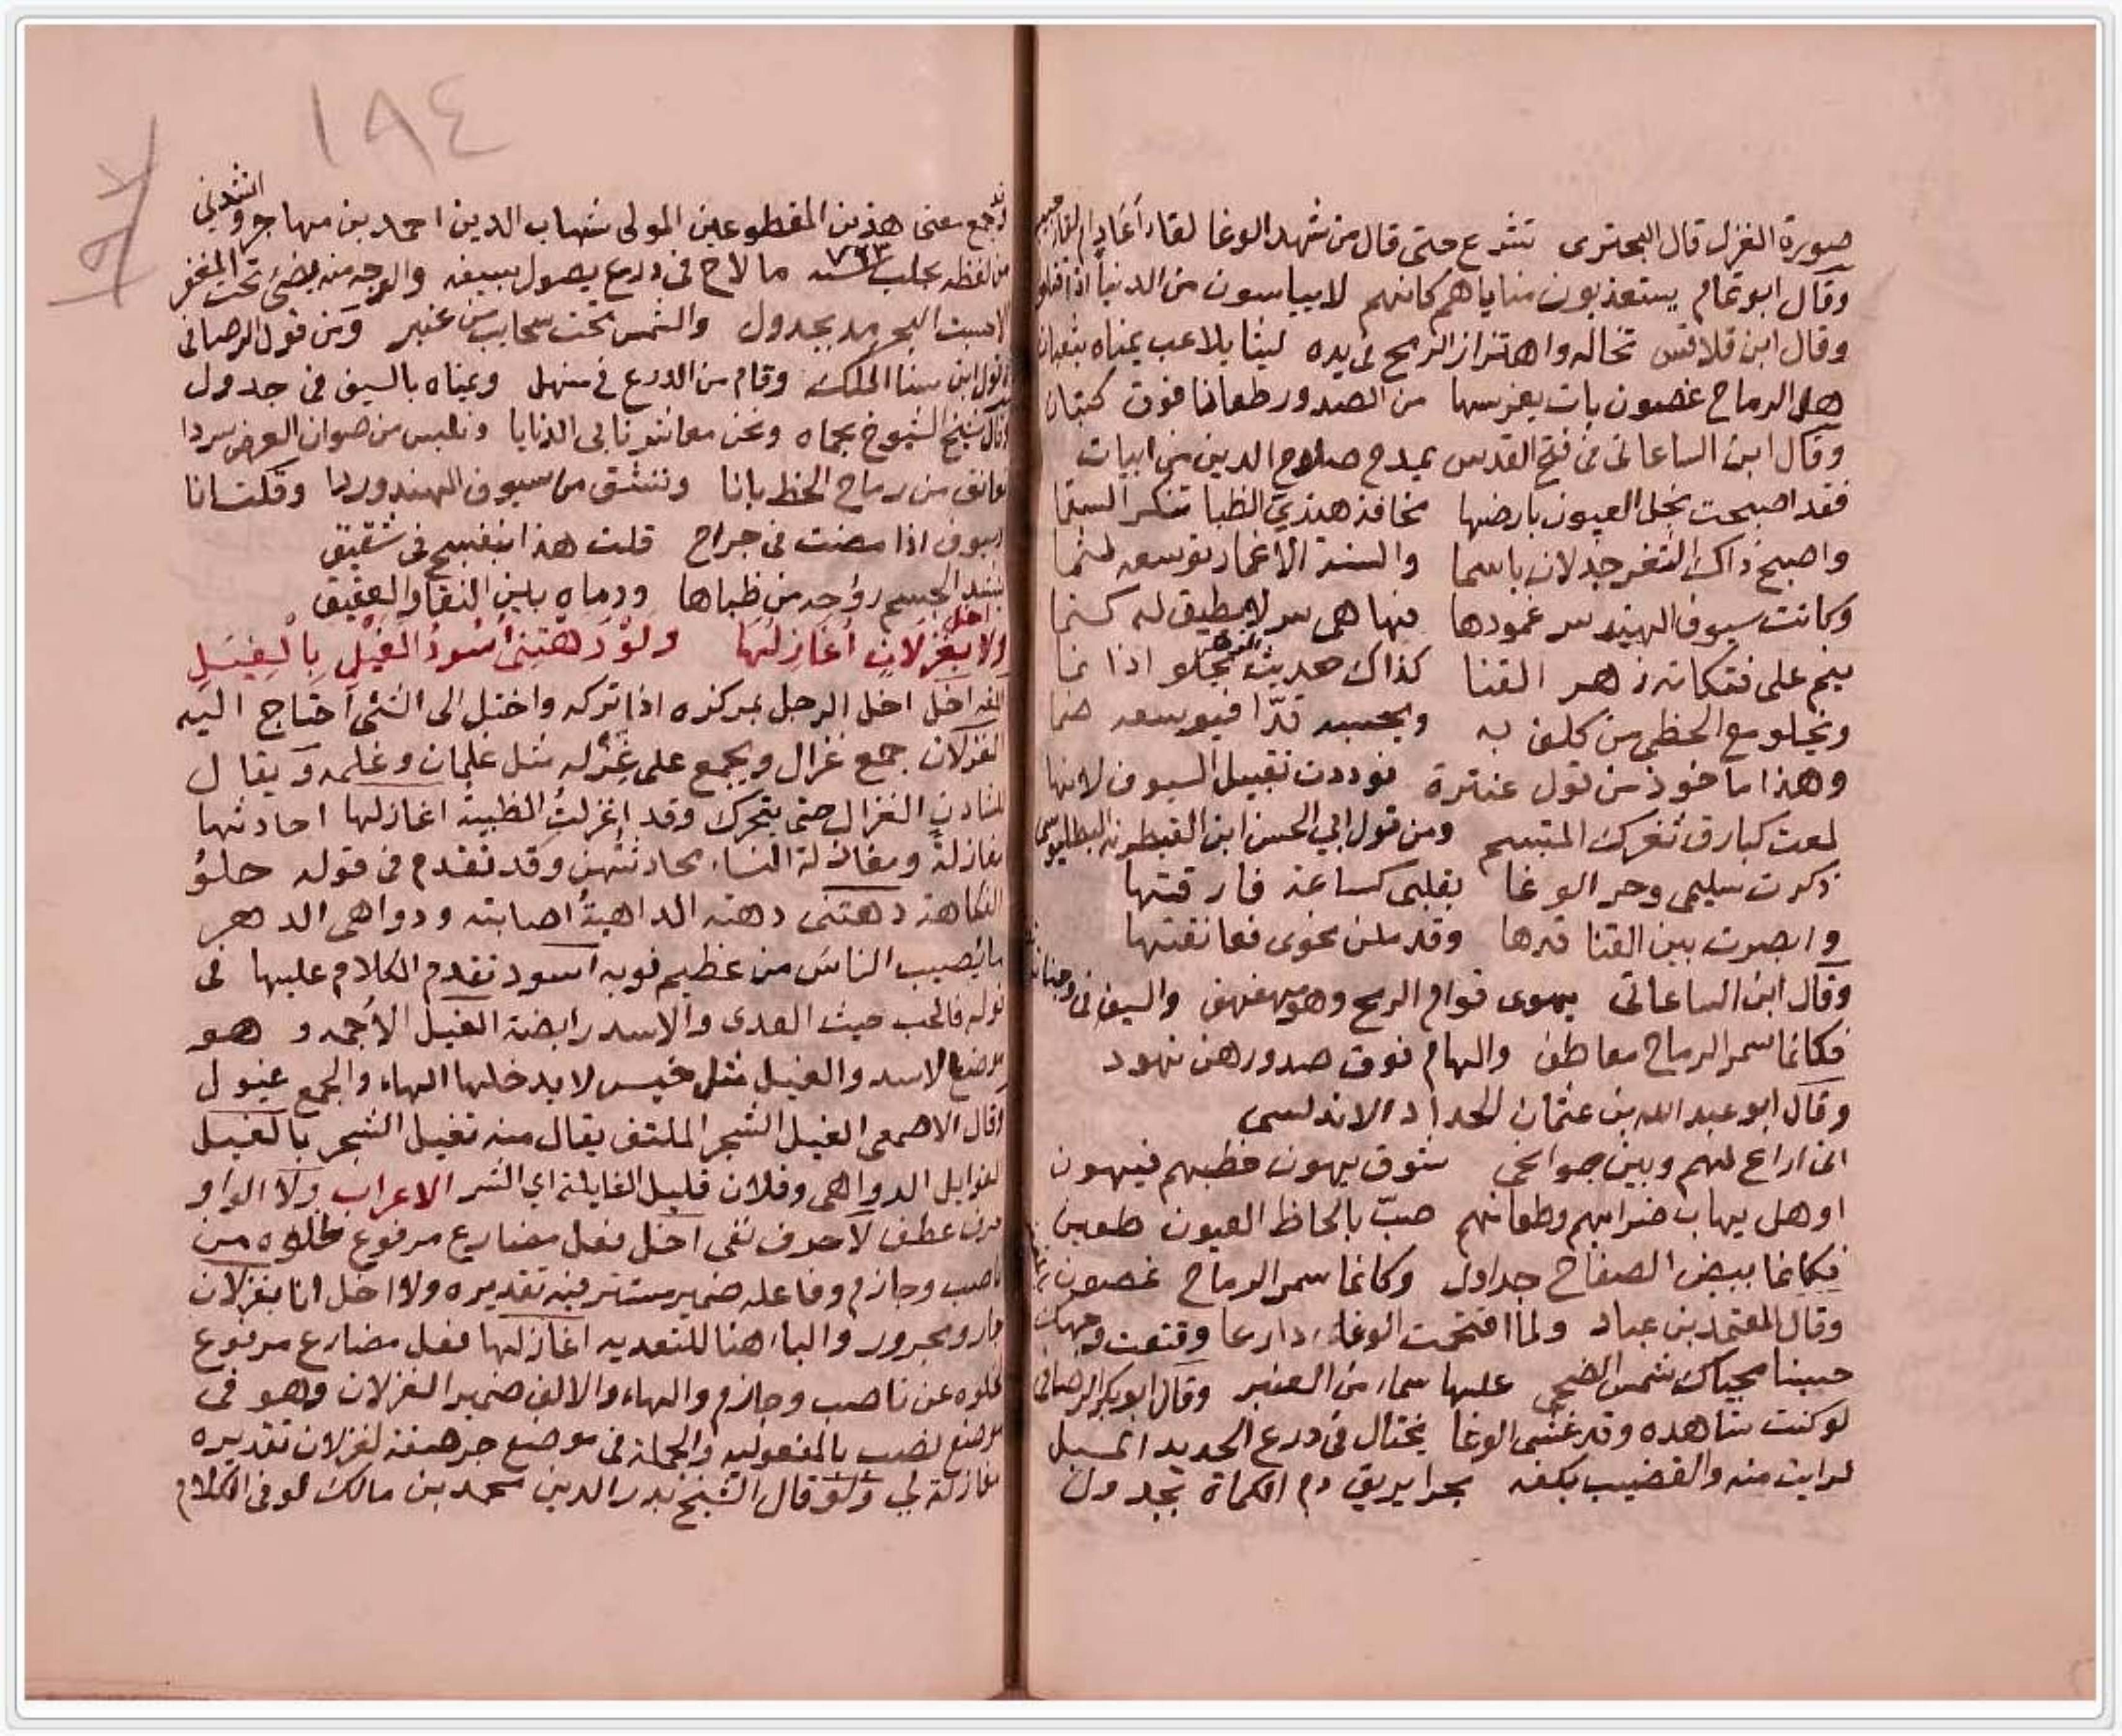 صورة الغزل قال البحترى تسرع حتى قال من شهد الوغا لقاء أعاد ام لقاء
وقال ابو تمام يستعذبون مناياهم كانهم لا يياسون من الدنيا اذا قتلوا
وقال ابن قلاقس تخاله واهتزاز الرمح فى يده ليثا يلاعب يمناه بثعبان
هل الرماح غصون بات يغرسها من الصدور طعانا فوق كثبان
وقال ابن الساعاتى فى فتح القدس يمدح صلاح الدين من ابيات
فقد اصبحت نجل العيون بارضها مخافة هندى الظبا تنكر السقما
واصبح ذاك الثغر جدلان باسما والسنة الاغماد توسعه لثما
وكانت سيوف الهند سر غمودها فها هى سر لا يطيق له كتما
ينم على فتكاته زهر القنا كذاك حديث يحلو اذا نما
ويخلو مع الخطى من كلف به ويحسبه قدّا فيوسعه ضما
وهذا ماخوذ من قول عنترة فوددت تقبيل السيوف لانها
لمعت كبارق ثغرك المتبسم ومن قول ابي الحسن ابن القبطرنه البطليوسى
ذكرت سليمى وحر الوغا بقلبى كساعة فارقتها
وابصرت بين القنا قدها وقد ملن نحوى فعانقتها
وقال ابن الساعاتى يهوى قوام الرمح وهو مهفهف والسيف فى
فكانما سمر الرماح معاطف والهام فوق صدورهن نهود
وقال ابو عبد الله بن عثمان الحداد الاندلسى
انى اراع لهم وبين جوانحى شوق يهون خطبهم فيهون
او هل يهاب ضرابهم وطعانهم صبّ بالحاظ العيون طعين
فكانما بيض الصفاح جداول وكانما سمر الرماح غصون
وقال المعتمد بن عباد ولما اقتحمت الوغا دارعا وقنعت وجهك
حسبنا محياك شمس الضحى عليها سماء من العنبر وقال ابو بكر الرصافى
لو كنت شاهده وقد غشى الوغا يختال فى درع الحديد المسبل
لرايت منه والقضيب بكفه بحرا يريق دم الكماة بجدول
١٨٤
وقد جمع معنى هذين المقطوعين المولى شهاب الدين احمد بن مهاجر وانشدنى
من لفظه بحلب سنه ٧٢٣ ما لاح فى درع يصول بسيفه والوجه منه يضىء تحت المغفر
الا حسبت البحر مد بجدول والشمس تحت سحايب من عنبر ومن قول الرصافى
قول ابن سنا الملك وقام من الدرع فى منهل ويمناه بالسيف فى جدول
وقال شيخ الشيوخ بحماه ونحن معاشر نابى الدنايا ونلبس من صوان العرض سردا
نعانق من رماح الخط بانا وننشق من سيوف الهند وردا وقلت انا
سيوف اذا مضت فى جراح قلت هذا بنفسج فى شقيق
الجسم روحه من ظباها ودماه بين النقا والعقيق
ولا اخل بغزلان اغازلها ولو دهتنى اسود الغيل بالغيل
اللغه اخل اخل الرجل بمركزه اذا تركه واختل الى الشئ احتاج اليه
الغزلان جمع غزال ويجمع على غزله مثل غلمان وغلمه ويقال
الغزال حتى يتحرك وقد اغزلت الظبية اغازلها احادثها
مغازلة ومغازلة النساء محادثتهن وقد تقدم فى قوله حلو
الفكاهة دهتنى دهته الداهية اصابته ودواهى الدهر
ما يصيب الناس من عظيم نوبه اسود تقدم الكلام عليها فى
قوله فالحب حيث العدى والاسد رابضة الغيل الاجمه وهو
موضع الاسد والغيل مثل خيس لا يدخلها الهاء والجمع غيول
وقال الاصمعى الغيل الشجر الملتف يقال منه تغيل الشجر بالغيل
الغوايل الدواهى وفلان قليل الغايلة اي الشر الاعراب ولا الواو
حرف عطف لا حرف نفى اخل فعل مضارع مرفوع خلوه من
ناصب وجازم وفاعله ضمير مستتر فيه تقديره ولا اخل انا بغزلان
جار ومجرور والباء هنا للتعديه اغازلها فعل مضارع مرفوع
لخلوه عن ناصب وجازم والهاء والالف ضمير الغزلان وهو فى
موضع نصب بالمفعوليه والجملة فى موضع جر صفة لغزلان تقديره
مغازلة لي ولو قال الشيخ بدر الدين محمد بن مالك لو فى الكلام